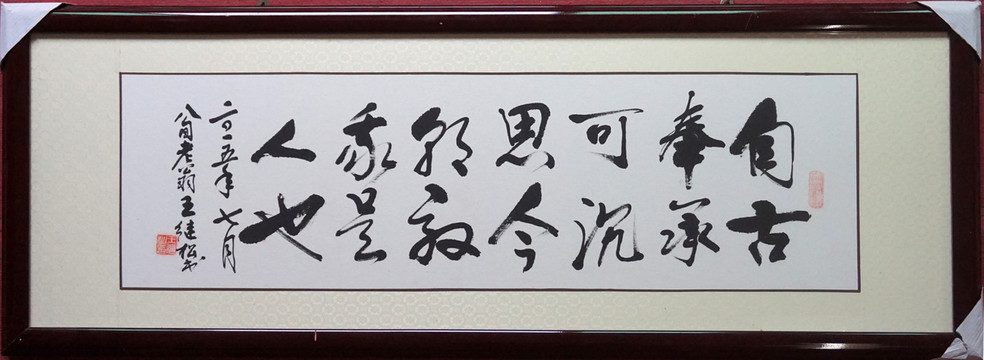 自古
奉承
可沉
思今
朝敌
我是
人也
二〇一五年七月
八旬老翁王继松书